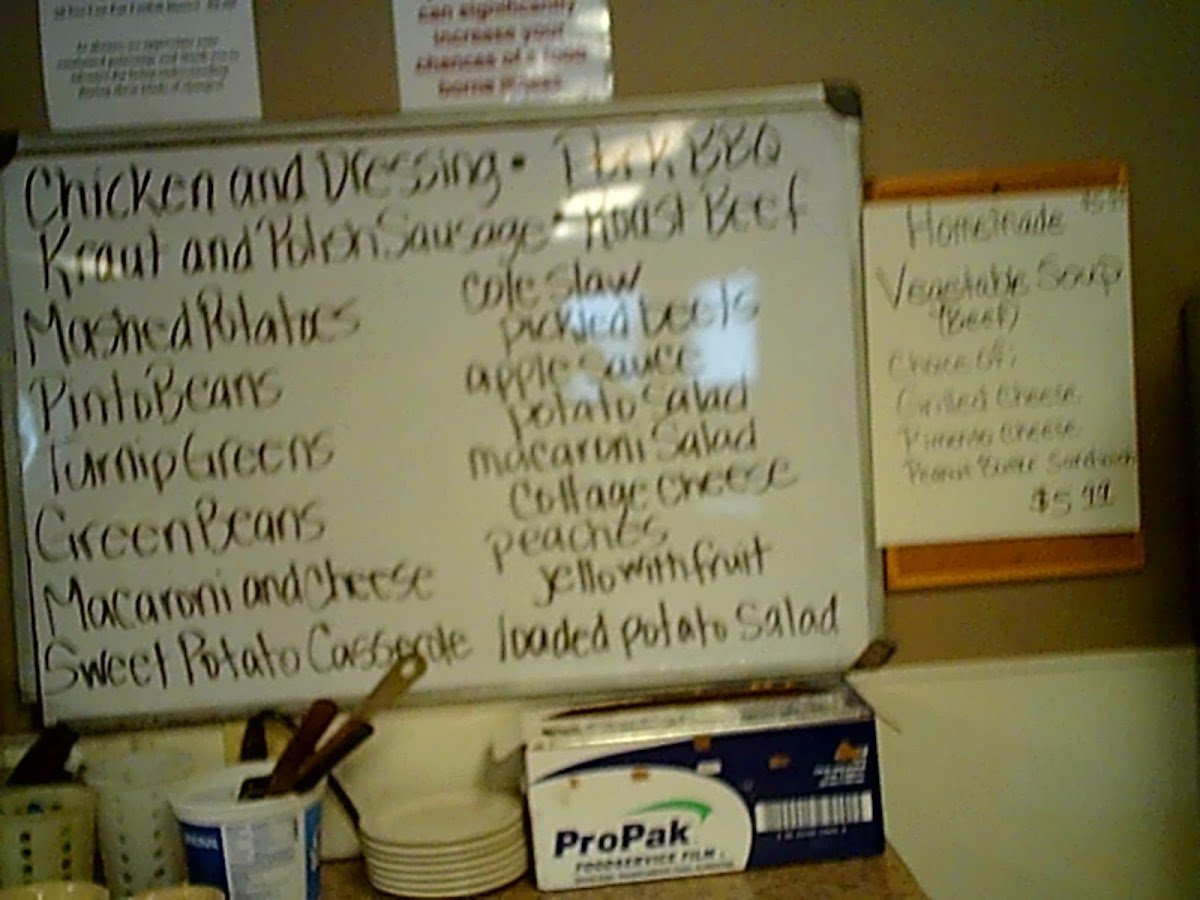 can significantly
increase your
chances of a food
borne illness
Chicken and Dressing • Pork BBQ
Kraut and Polish Sausage • Roast Beef
Mashed Potatoes
Pinto Beans
Turnip Greens
Green Beans
Macaroni and Cheese
Sweet Potato Casserole
cole slaw
pickled beets
apple sauce
potato salad
macaroni Salad
Cottage cheese
peaches
jello with fruit
loaded potato Salad
Homemade
Vegetable Soup
(Beef)
Choice Of:
Grilled Cheese
Pimento Cheese
Peanut Butter Sandwich
$5.99
ProPak
FOODSERVICE FILM